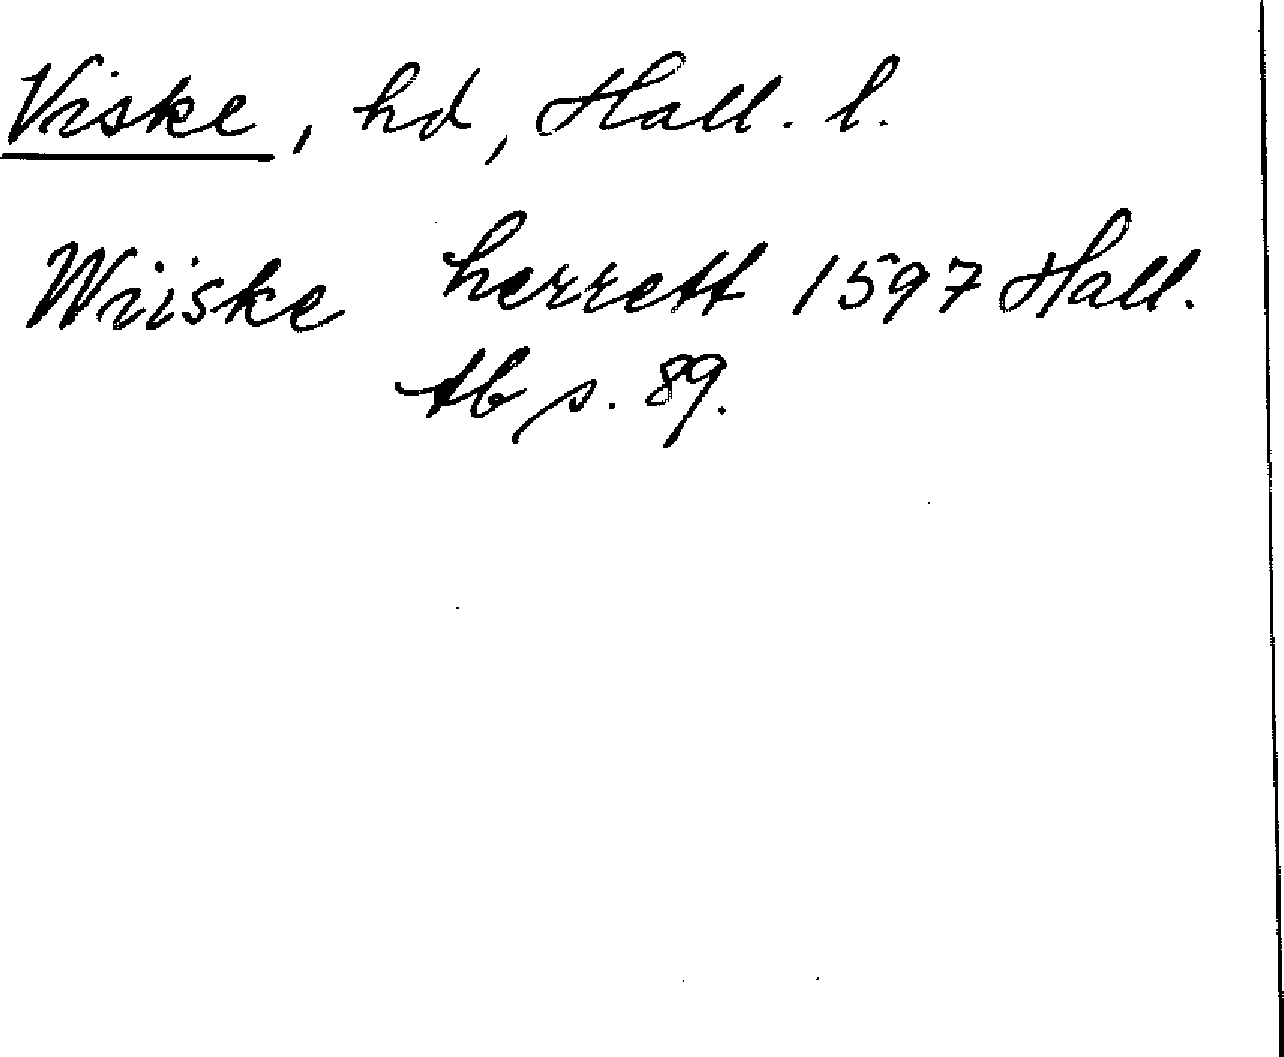 Viske, hd, Hall. l.
Wiiske herrett 1597 Hall.
tb s. 89.